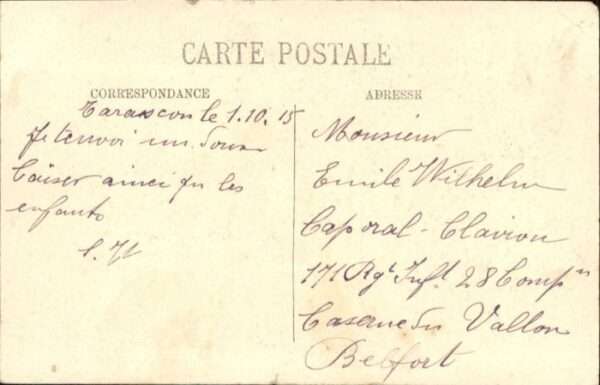 CARTE POSTALE
CORRESPONDANCE
Tarascon le 1.10.15
Je tenvoi un doux
baiser ainci qu les
enfants
ADRESSE
Monsieur
Emile Wilhelm
Caporal - Clairon
171 Rgt Inft 28 Compn
Caserne du Vallon
Belfort